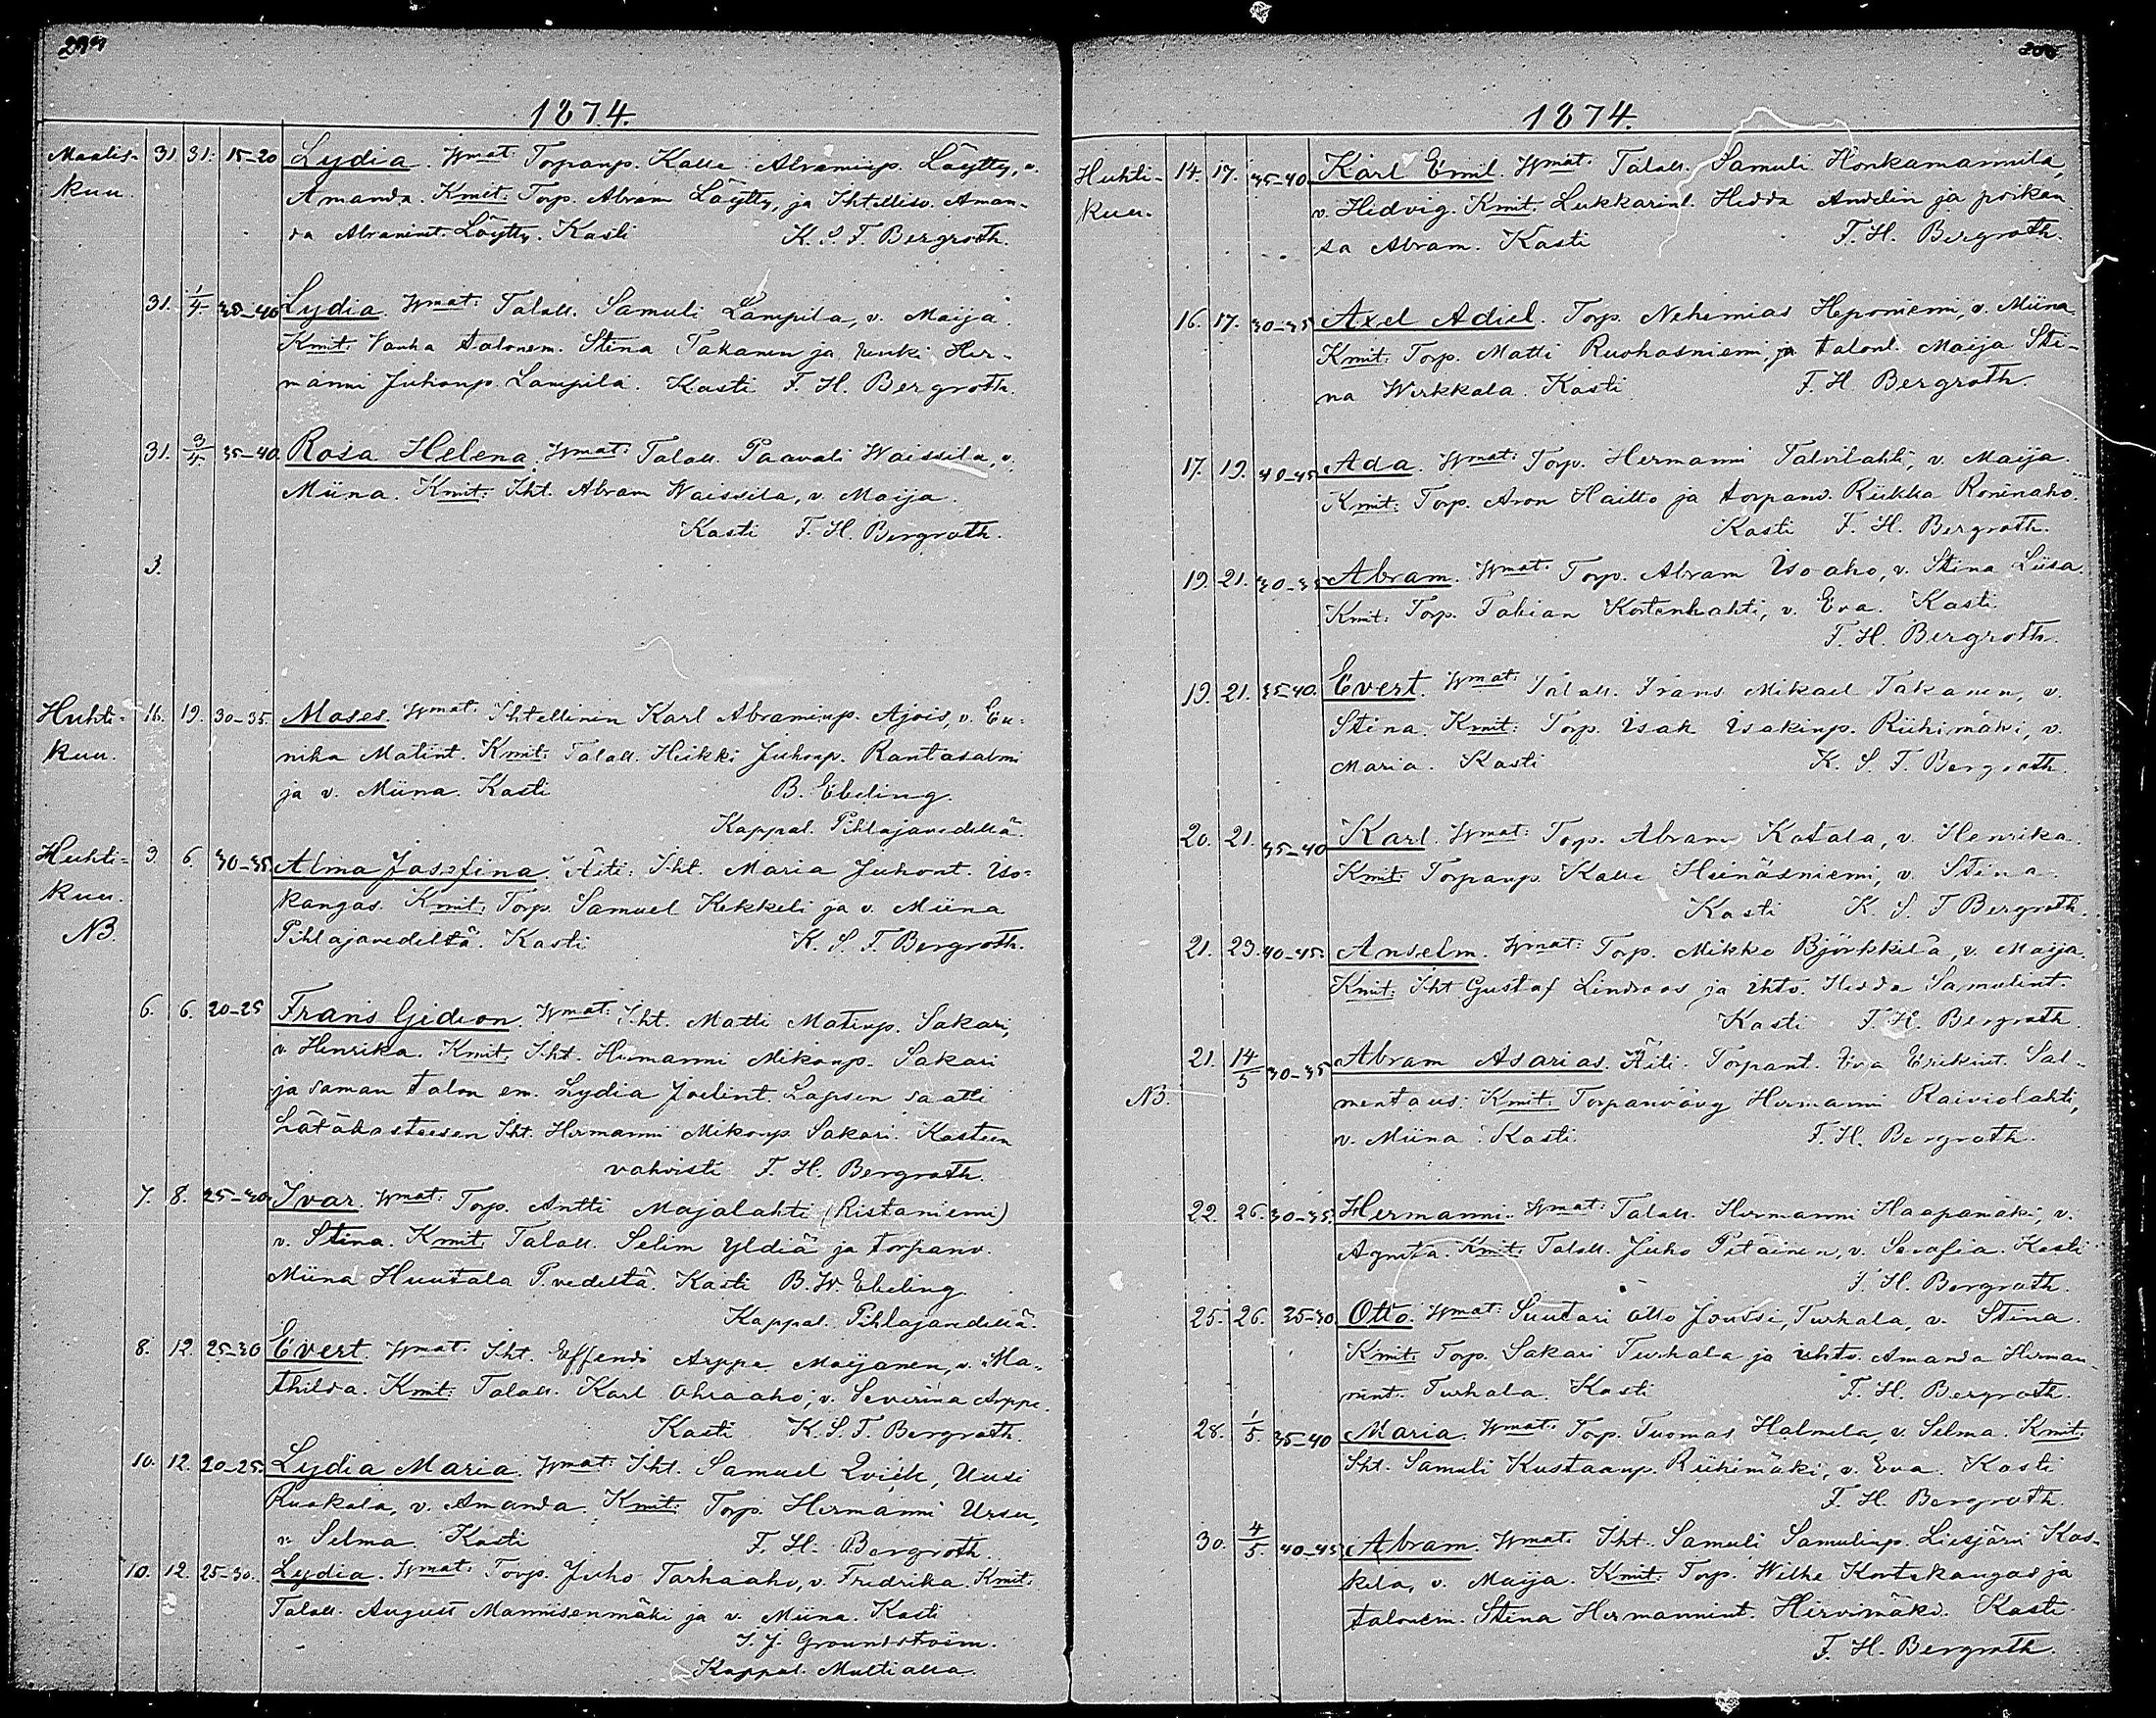 1874.
Maalis- 31 31. 15-20 Lydia. Wmat: Torpanp. Kalle Abraminp. Löytty, v.
kuu. Amanda. Kmit: Torp. Abram Löytty, ja Ihtellisv. Aman-
da Abramint. Löytty. Kasti K. S. F. Bergroth.
31. 1/4. 35-40 Lydia. Wmat: Talall. Samuli Lampila, v. Maija.
Kmit: Vanha talonem. Stina Takanen ja renki Her-
manni Juhonp. Lampila. Kasti F. H. Bergroth.
31. 3/4. 35-40. Rosa Helena. Wmat: Talall. Paavali Waissila, v.
Miina. Kmit: Iht. Abram Waissila, v. Maija.
Kasti F. H. Bergroth.
3.
Huhti- 16. 19. 30-35. Moses. Wmat: Ihtellinen Karl Abraminp. Ajois, v. Eu-
kuu. nika Matint. Kmit: Talall. Heikki Juhonp. Rantasalmi
ja v. Miina. Kasti B. Ebeling.
Kappal. Pihlajavedellä.
Huhti- 3. 6. 30-35. Alma Josefina. Äiti: Iht. Maria Juhont. Iso-
kuu. kangas. Kmit: Torp. Samuel Kekkeli ja v. Miina
NB. Pihlajavedeltä. Kasti K. S. F. Bergroth.
6. 6. 20-25 Frans Gideon. Wmat: Iht. Matti Matinp. Sakari,
v. Henrika. Kmit: Iht. Hermanni Mikonp. Sakari
ja saman talon em. Lydia Joelint. Lapsen saatti
hätäkasteesen Iht. Hermanni Mikonp. Sakari. Kasteen
vahvisti F. H. Bergroth.
7. 8. 25-30. Ivar. Wmat: Torp. Antti Majalahti (Ristaniemi)
v. Stina. Kmit: Talall. Selim Yldiä ja torpanv.
Miina Huutala P.vedeltä. Kasti B. W. Ebeling.
Kappal. Pihlajavedellä.
8. 12. 25-30 Evert. Wmat: Iht. Effendi Arppe Moijanen, v. Ma-
thilda. Kmit: Talall. Karl Ohraaho, v. Severina Arppe.
Kasti K. S. F. Bergroth.
10. 12. 20-25. Lydia Maria. Wmat: Iht. Samuel Qvick, Uusi
Ruokala, v. Amanda. Kmit: Torp. Hermanni Ursu,
v. Selma. Kasti F. H. Bergroth.
10. 12. 25-30. Lydia. Wmat: Torp. Juho Tarhaaho, v. Fredrika. Kmit:
Talall. August Mannisenmäki ja v. Miina. Kasti
I. J. Groundstroim.
Kappal. Multialla.
1874.
Huhti- 14. 17. 35-40 Karl Emil. Wmat: Talall. Samuli Honkamannila,
kuu. v. Hedvig. Kmit: Lukkarinl. Hedda Andelin ja poikan-
sa Abram. Kasti F. H. Bergroth.
16. 17. 30-35 Axel Adiel. Torp. Nehemias Heponiemi, v. Miina
Kmit: Torp. Matti Ruohasniemi ja talonl. Maija Sti-
na Wirkkala. Kasti F. H. Bergroth.
17. 19. 40-45 Ada. Wmat: Torp. Hermanni Talvilahti, v. Maija.
Kmit: Torp. Aron Haitto ja torpanv. Riikka Roninaho.
Kasti F. H. Bergroth.
19. 21. 30-35 Abram. Wmat: Torp. Abram Isoaho, v. Stina Liisa.
Kmit: Torp. Fabian Kortenlahti, v. Eva. Kasti
F. H. Bergroth.
19. 21. 35-40. Evert. Wmat: Talall. Frans Mikael Takanen, v.
Stina. Kmit: Torp. Isak Isakinp. Riihimäki, v.
Maria. Kasti K. S. F. Bergroth.
20. 21. 35-40 Karl. Wmat: Torp. Abram Kotala, v. Henrika.
Kmit: Torpanp. Kalle Heinäsniemi, v. Stina.
Kasti K. S. F Bergroth.
21. 23. 40-45. Anselm. Wmat: Torp. Mikko Björkkilä, v. Maija.
Kmit: Iht Gustaf Lindroos ja ihtv. Hedda Samulint.
Kasti F. H. Bergroth.
21. 14/5 30-35 Abram Asarias. Äiti: Torpant. Eva Erikint. Sal-
NB. mentaus. Kmit: Torpanvävy Hermanni Raiviolahti,
v. Miina. Kasti F. H. Bergroth.
22. 26. 30-35. Hermanni. Wmat: Talall. Hermanni Haapamäki, v.
Agneta. Kmit: Talall. Juho Petäinen, v. Serafia. Kasti
F. H. Bergroth.
25. 26. 25-30 Otto. Wmat: Suutari Otto Joussi, Turhala, v. Stina.
Kmit: Torp. Sakari Turhala ja ihtv. Amanda Herman-
nint. Turhala. Kasti F. H. Bergroth.
28. 1/5. 35-40 Maria. Wmat: Torp. Tuomas Halmela, v. Selma. Kmit:
Iht. Samuli Kustaanp. Riihimäki, v. Eva. Kasti
F. H. Bergroth.
30. 4/5. 40-45 Abram. Wmat: Iht. Samuli Samulinp. Liesjärvi Kos-
kela, v. Maija. Kmit: Torp. Wilhe Kortekangas ja
talonem. Stina Hermannint. Hirvimäki. Kasti
F. H. Bergroth.